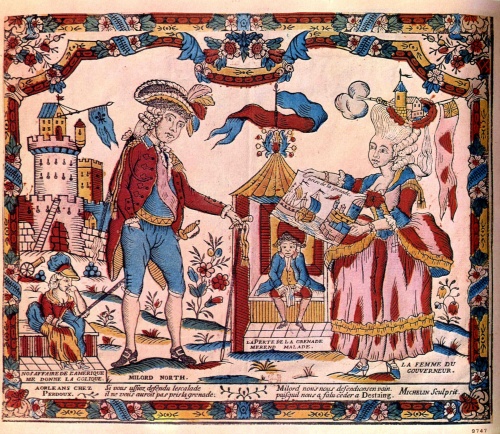 NOS AFFAIRE DE LAMERIQUE
ME DONNE LA COLIQUE.
MILORD NORTH.
LA PERTE DE LA GRENADE
MEREND MALADE.
LA FEMME DU
GOUVERNEUR.
AORLEANS CHEZ
PERDOUX.
Si vous ussiez defendu lescalade
il ne vous auroit pas pris la grenade.
Milord nous nous defendions en vain
puisquil nous a falu ceder a Destaing.
MICHELIN Sculpsit.
9747